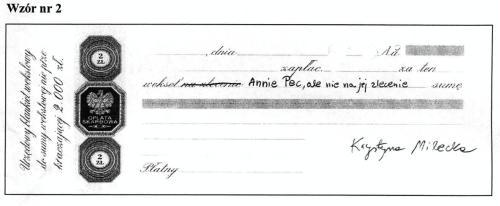 Wzór nr 2
Urzędowy blankiet wekslowy
do sumy wekslowej nie prze
kraczającej 2.000 zł.
2
ZŁ
OPŁATA
SKARBOWA
2
ZŁ
dnia Nd.
zapłac za ten
weksel na zlecenie Annie Pec, ale nie na jej zlecenie sumę
Krystyna Milecka
Płatny